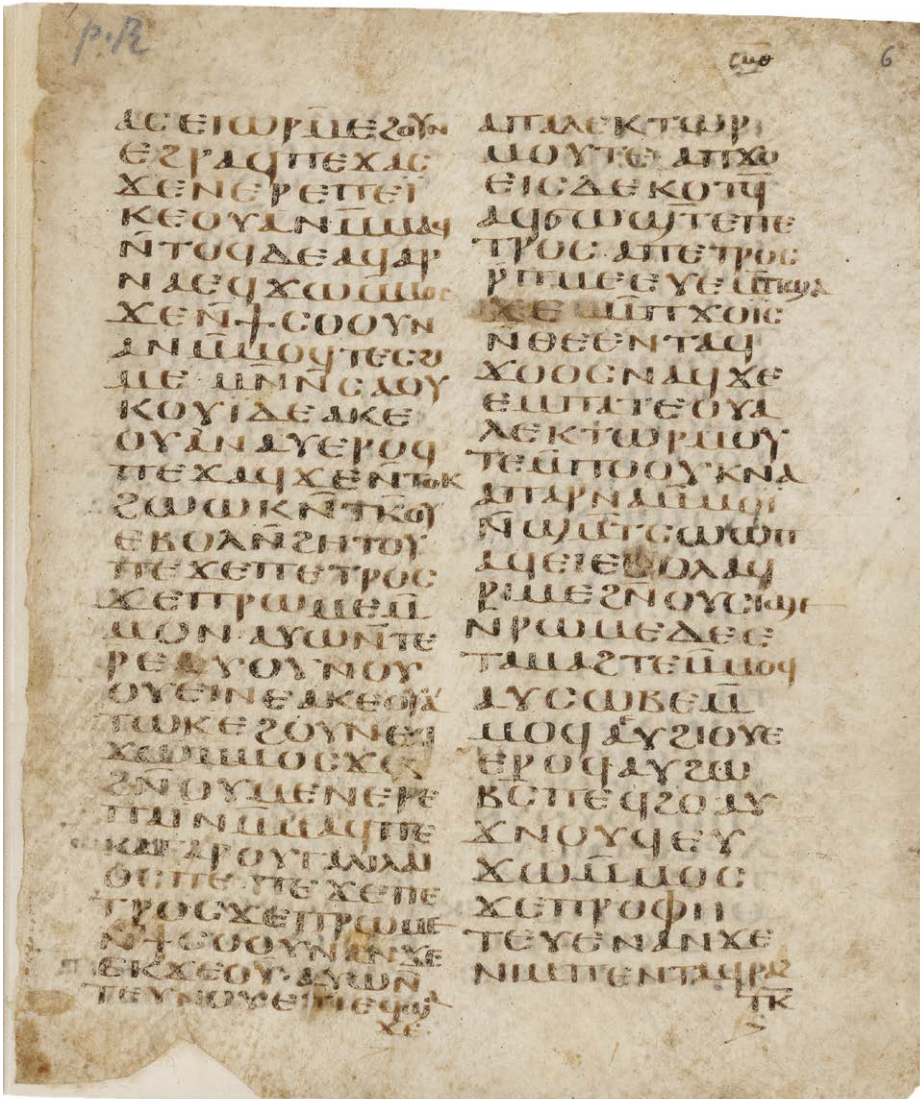 ⲥⲙⲑ
6
ⲁⲥⲉⲓⲱⲣⲙⲉϩⲟⲩⲛ
ⲉϩⲣⲁϥⲡⲉϫⲁⲥ
ϫⲉⲛⲉⲣⲉⲡⲉⲓ̈
ⲕⲉⲟⲩⲁⲛⲙ̄ⲙⲁϥ
ⲛ̄ⲧⲟϥⲇⲉⲁϥⲁⲣ
ⲛⲁⲉϥϫⲱⲙⲙⲟⲥ
ϫⲉⲛ̄ϯⲥⲟⲟⲩⲛ
ⲁⲛⲙ̄ⲙⲟϥⲧⲉⲥϩⲓ
ⲙⲉ ⲙⲛ̄ⲛ̄ⲥⲁⲟⲩ
ⲕⲟⲩⲓⲇⲉⲁⲕⲉ
ⲟⲩⲁⲛⲁⲩⲉⲣⲟϥ
ⲡⲉϫⲁϥϫⲉⲛ̄ⲧⲟⲕ
ϩⲱⲱⲕⲛ̄ⲧⲕ̄ⲟⲩ
ⲉⲃⲟⲗⲛ̄ϩⲏⲧⲟⲩ
ⲡⲉϫⲉⲡⲉⲧⲣⲟⲥ
ϫⲉⲡⲣⲱⲙⲉⲙ̄
ⲙⲟⲛ ⲁⲩⲱⲛ̄ⲧⲉ
ⲣⲉⲁⲩⲟⲩⲛⲟⲩ
ⲟⲩⲉⲓⲛⲉⲁⲕⲉⲟⲩⲁ
ⲧⲱⲕⲉϩⲟⲩⲛⲉϥ
ϫⲱⲙⲙⲟⲥϫⲉ
ϩⲛ̄ⲟⲩⲙⲉⲛⲉⲣⲉ
ⲡⲁⲓⲛⲙ̄ⲙⲁϥⲡⲉ
ⲕⲁⲓⲅⲁⲣⲟⲩⲅⲁⲗⲓⲗⲁⲓ
ⲟⲥⲡⲉ ⲡⲉϫⲉⲡⲉ
ⲧⲣⲟⲥϫⲉⲡⲣⲱⲙⲉ
ⲛ̄ϯⲥⲟⲟⲩⲛⲁⲛϫⲉ
ⲉⲕϫⲉⲟⲩ ⲁⲩⲱⲛ̄
ⲧⲉⲩⲛⲟⲩⲉⲧⲓⲉϥϣⲁ
ϫⲉ
ⲁⲡⲁⲗⲉⲕⲧⲱⲣ
ⲙⲟⲩⲧⲉ ⲁⲡϫⲟ
ⲉⲓⲥⲇⲉⲕⲟⲧϥ̄
ⲁϥϭⲱϣⲧⲉⲡⲉ
ⲧⲣⲟⲥ ⲁⲡⲉⲧⲣⲟⲥ
ⲣ̄ⲡⲙⲉⲉⲩⲉⲙ̄ⲡϣⲁ
ϫⲉ ⲙ̄ⲡϫⲟⲓⲥ
ⲛ̄ⲑⲉⲉⲛⲧⲁϥ
ϫⲟⲟⲥⲛⲁϥϫⲉ
ⲉⲙⲡⲁⲧⲉⲟⲩⲁ
ⲗⲉⲕⲧⲱⲣⲙⲟⲩ
ⲧⲉⲙ̄ⲡⲟⲟⲩⲕⲛⲁ
ⲁⲡⲁⲣⲛⲁⲙ̄ⲙⲟⲓ
ⲛ̄ϣⲙ̄ⲧⲥⲱⲱⲡ
ⲁϥⲉⲓⲉⲃⲟⲗⲁϥ
ⲣⲓⲙⲉϩⲛⲟⲩⲥⲓϣⲉ
ⲛⲣⲱⲙⲉⲇⲉⲉⲧ
ⲧⲁⲙⲁϩⲧⲉⲙ̄ⲙⲟϥ
ⲁⲩⲥⲱⲃⲉⲙ̄
ⲙⲟϥ ⲁⲩϩⲓⲟⲩⲉ
ⲉⲣⲟϥⲁⲩϩⲱ
ⲃⲥⲡⲉϥϩⲟⲁⲩ
ϫⲛⲟⲩϥⲉⲩ
ϫⲱⲙ̄ⲙⲟⲥ
ϫⲉⲡⲣⲟⲫⲏ
ⲧⲉⲩⲉⲛⲁⲛϫⲉ
ⲛⲓⲙⲡⲉⲛⲧⲁϥⲣⲁϩ
ⲧⲕ̄